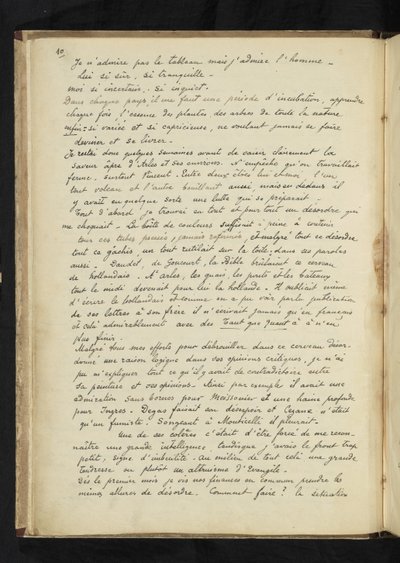 10
Je n'admire pas le tableau mais j'admire l'homme –
Lui si sûr, si tranquille –
moi si incertain, si inquiet.
Dans chaque pays il me faut une période d'incubation, apprendre
chaque fois l'essence des plantes des arbres de toute la nature
enfin si variée et si capricieuse, ne voulant jamais se faire
deviner et se livrer –
Je restai donc quelques semaines avant de saisir clairement la
saveur âpre d'Arles et ses environs. N'empêche qu'on travaillait
ferme, surtout Vincent – Entre deux êtres lui et moi, l'un
tout volcan et l'autre bouillant aussi, mais en dedans il
y avait en quelque sorte une lutte qui se préparait –
Tout d'abord je trouvai en tout et pour tout un désordre qui
me choquait – La boîte de couleurs suffisait à peine à contenir
tous ces tubes pressés, jamais refermés, et malgré tout ce désordre
tout ce gâchis, un tout rutilait sur la toile, dans ses paroles
aussi – Daudet, de Goncourt, la Bible brûlaient ce cerveau
de hollandais – A Arles, les quais, les ponts et les bateaux
tout le midi devenait pour lui la hollande – Il oubliait même
d'écrire le hollandais et comme on a pu voir par la publication
de ses lettres à son frère il n'écrivait jamais qu'en français
et cela admirablement avec des Tant que Quant à à n'en
plus finir –
Malgré tous mes efforts pour débrouiller dans ce cerveau désor-
donné une raison logique dans ses opinions critiques, je n'ai
pu m'expliquer tout ce qu'il y avait de contradictoire entre
sa peinture et ses opinions – Ainsi par exemple il avait une
admiration sans bornes pour Meissonier et une haine profonde
pour Ingres – Degas faisait son désespoir et Cezane n'était
qu'un fumiste! Songeant à Monticelli il pleurait –
Une de ses colères c'était d'être forcé de me recon-
naître une grande intelligence tandis que j'avais le front trop
petit, signe d'imbécilité – Au milieu de tout cela une grande
tendresse ou plutôt un altruisme d'Evangile –
Dès le premier mois je vis nos finances en commun prendre les
mêmes allures de désordre. Comment faire? la situation